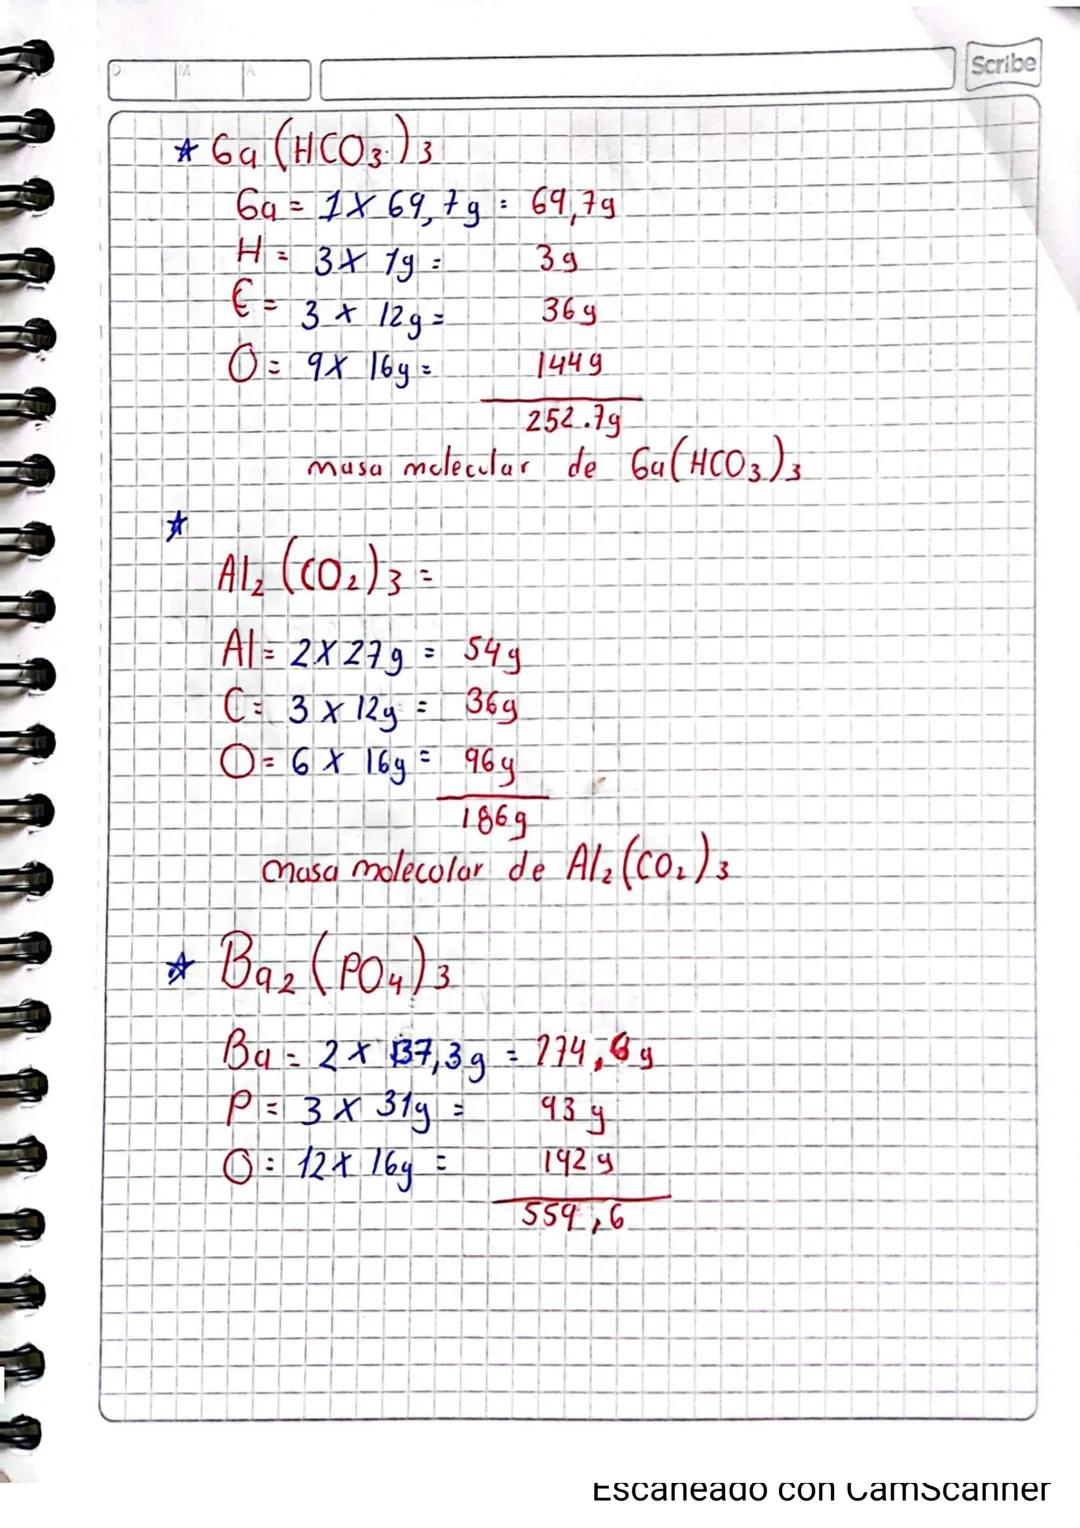 D M A
Scribe
* Ga (HCO3)3
Ga = 1 X 69,7g = 69,7g
H = 3 X 1g = 3g
C = 3 x 12g = 36g
O = 9X 16g = 144g
252.7g
masa molecular de Ga(HCO3)3
*
Al2 (CO2)3 =
Al = 2 X 27g = 54g
C = 3 X 12g = 36g
O = 6 X 16g = 96g
186g
masa molecolar de Al2 (CO2)3
* Ba2 (PO4)3
Ba = 2 x 137,3g = 274,6g
P = 3 X 31g = 93g
O = 12X 16g = 192g
559,6
Escaneado con CamScanner